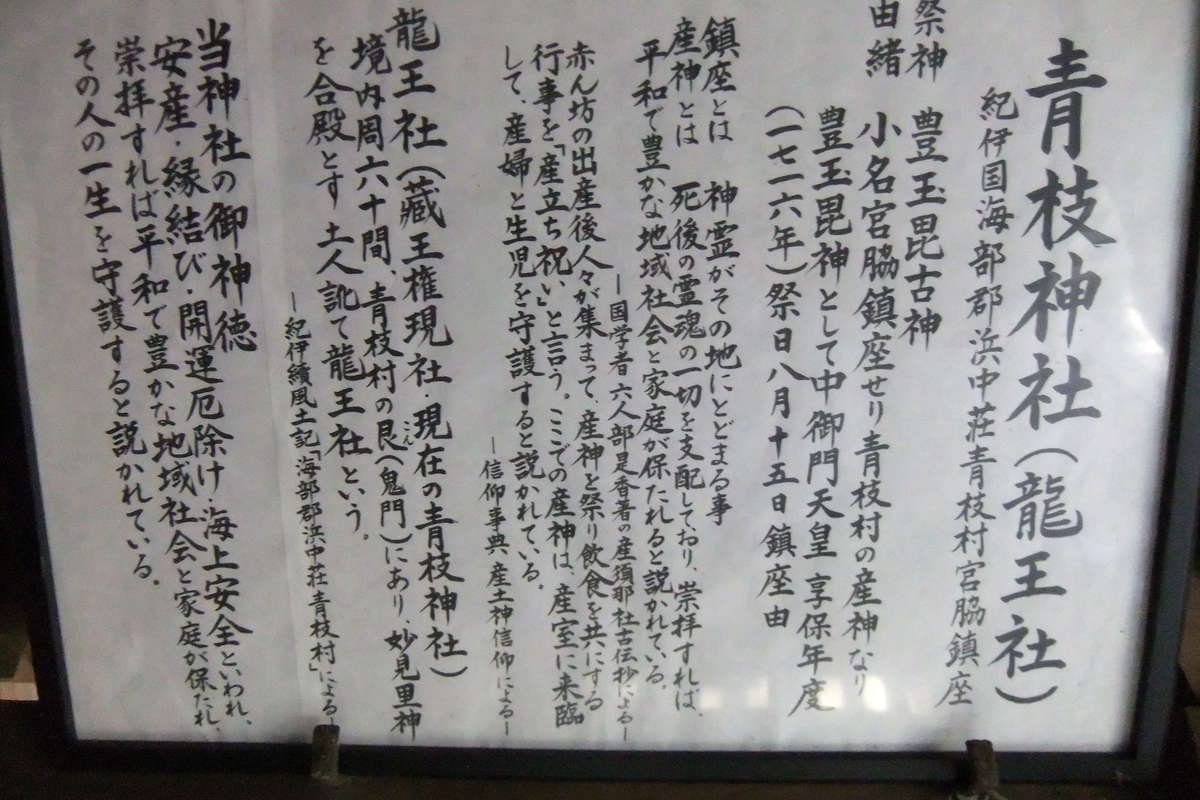 青枝神社(龍王社)
紀伊国海部郡浜中荘青枝村宮脇鎮座
祭神 豊玉毘古神
由緒 小名宮脇鎮座せり青枝村の産神なり
豊玉毘神として中御門天皇享保年度
(一七一六年)祭日八月十五日鎮座由
鎮座とは 神霊がその地にとどまる事
産神とは 死後の霊魂の一切を支配しており、崇拝すれば、
平和で豊かな地域社会と家庭が保たれると説かれている。
―国学者六人部是香著の産須那社古伝抄による―
赤ん坊の出産後人々が集まって、産神を祭り飲食を共にする
行事を「産立ち祝い」と言う。ここでの産神は、産室に来臨
して、産婦と生児を守護すると説かれている。
―信仰事典 産土神信仰による―
龍王社(蔵王権現社・現在の青枝神社)
境内周六十間、青枝村の艮(鬼門)にあり、妙見里神
こん
を合殿とす 土人訛て龍王社という。
―紀伊續風土記「海部郡浜中荘青枝村」による―
当神社の御神徳
安産・縁結び・開運厄除け・海上安全といわれ、
崇拝すれば平和で豊かな地域社会と家庭が保たれ、
その人の一生を守護すると説かれている。